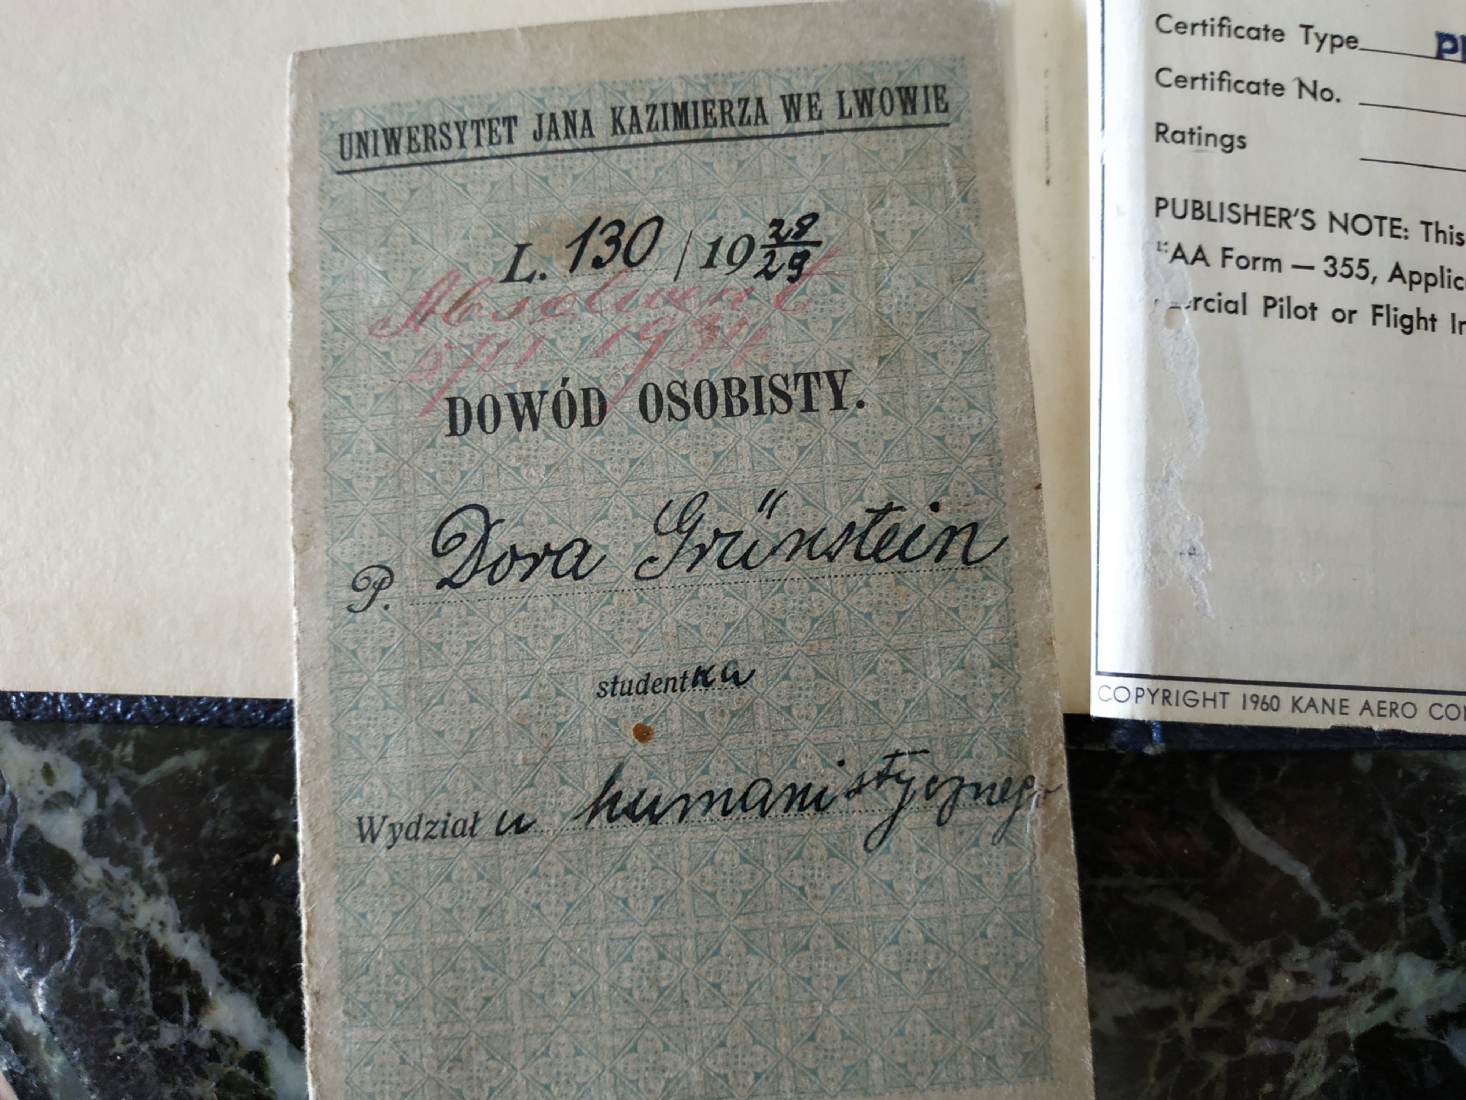 UNIWERSYTET JANA KAZIMIERZA WE LWOWIE
L. 130 / 19 28/29
Absolwent
1934
DOWÓD OSOBISTY.
P. Dora Grünstein
studentka
Wydziału humanistycznego
Certificate Type
Certificate No.
Ratings
PUBLISHER'S NOTE: This
FAA Form — 355, Applic
ercial Pilot or Flight In
COPYRIGHT 1960 KANE AERO CO